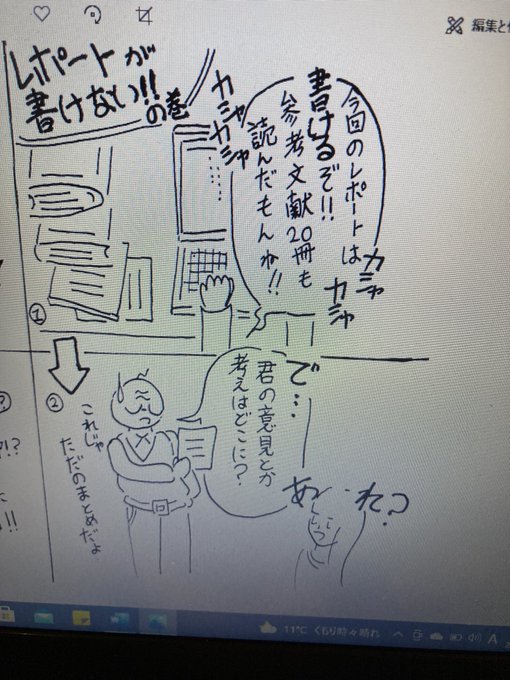 編集と
レポートが
書けない!!
の巻
カシャ
カシャ
今回のレポートは
書けるぞ!!
参考文献20冊も
読んだもんね!!
カシャ
カシャ
①
②
で…
君の意見とか
考えはどこに?
これじゃ
ただのまとめだよ
あ
れ?
?!?
!!
11℃ くもり時々晴れ
A